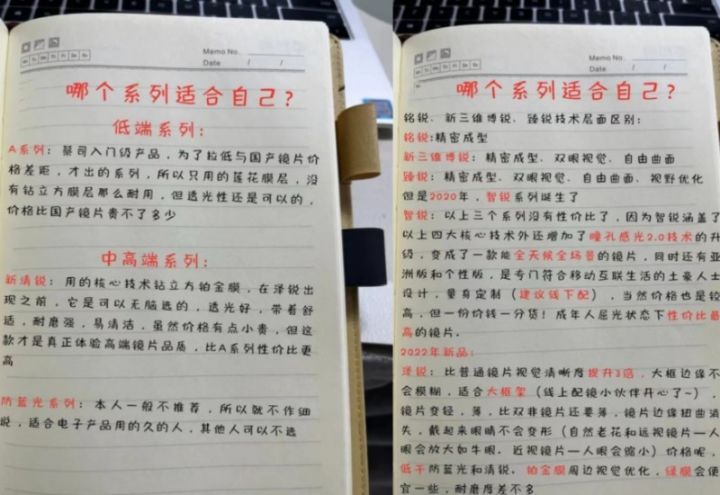 Memo No.
Date / /
哪个系列适合自己?
低端系列:
A系列: 蔡司入门级产品,为了拉低与国产镜片价
格差距,才出的系列,所以只用的莲花膜层,没
有钻立方膜层那么耐用,但透光性还是可以的,
价格比国产镜片贵不了多少
中高端系列:
新清锐: 用的核心技术钻立方铂金膜,在泽锐出
现之前,它是可以无脑选的,透光好,带着舒
适,耐磨强,易清洁,虽然价格有点小贵,但这
款才是真正体验高端镜片品质,比A系列性价比更
高
防蓝光系列: 本人一般不推荐,所以就不作细
说,适合电子产品用的久的人,其他人可以不选
Memo No.
Date / /
哪个系列适合自己?
铭锐、新三维博锐、臻锐技术层面区别:
铭锐:精密成型
新三维博锐: 精密成型、双眼视觉、自由曲面
臻锐: 精密成型、双眼视觉、自由曲面、视野优化
但是2020年,智锐系列诞生了
智锐: 以上三个系列没有性价比了,因为智锐涵盖了
以上四大核心技术外还增加了瞳孔感光2.0技术的升
级,变成了一款能全天候全场景的镜片,同时还有亚
洲版和个性版,是专门符合移动互联生活的土豪人士
设计,量身定制(建议线下配),当然价格也是较
高,但一份价钱一分货!成年人屈光状态下性价比最
高的镜片。
2022年新品:
泽锐: 比普通镜片视觉清晰度提升3倍,大框边缘不
会模糊,适合大框架(线上配镜小伙伴开心了~),
镜片变轻,薄,比双非镜片还要薄,镜片边缘扭曲消
失,戴起来眼睛不会变形(自然老花和远视镜片一人
眼会放大如牛眼、近视镜片一人眼会缩小)价格呢,
低于防蓝光和清锐、铂金膜周边视觉优化,绿膜会便
宜一些,耐磨度差不多